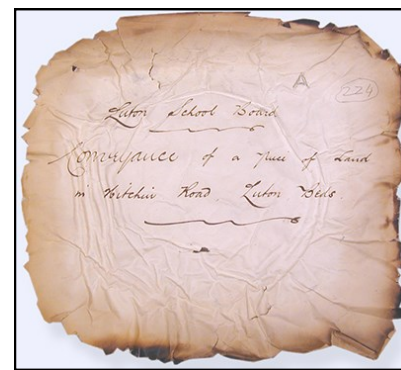 A
224
Luton School Board
Conveyance of a piece of Land
in Hitchin Road, Luton Beds